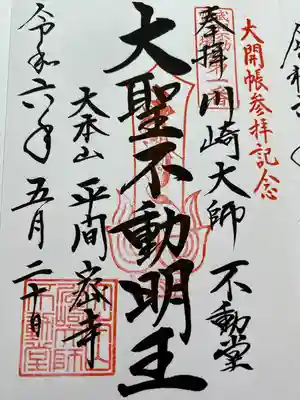 大開帳参拝記念
奉拝 川崎大師 不動堂
大聖不動明王
大本山 平間寺
令和六年 五月二十日